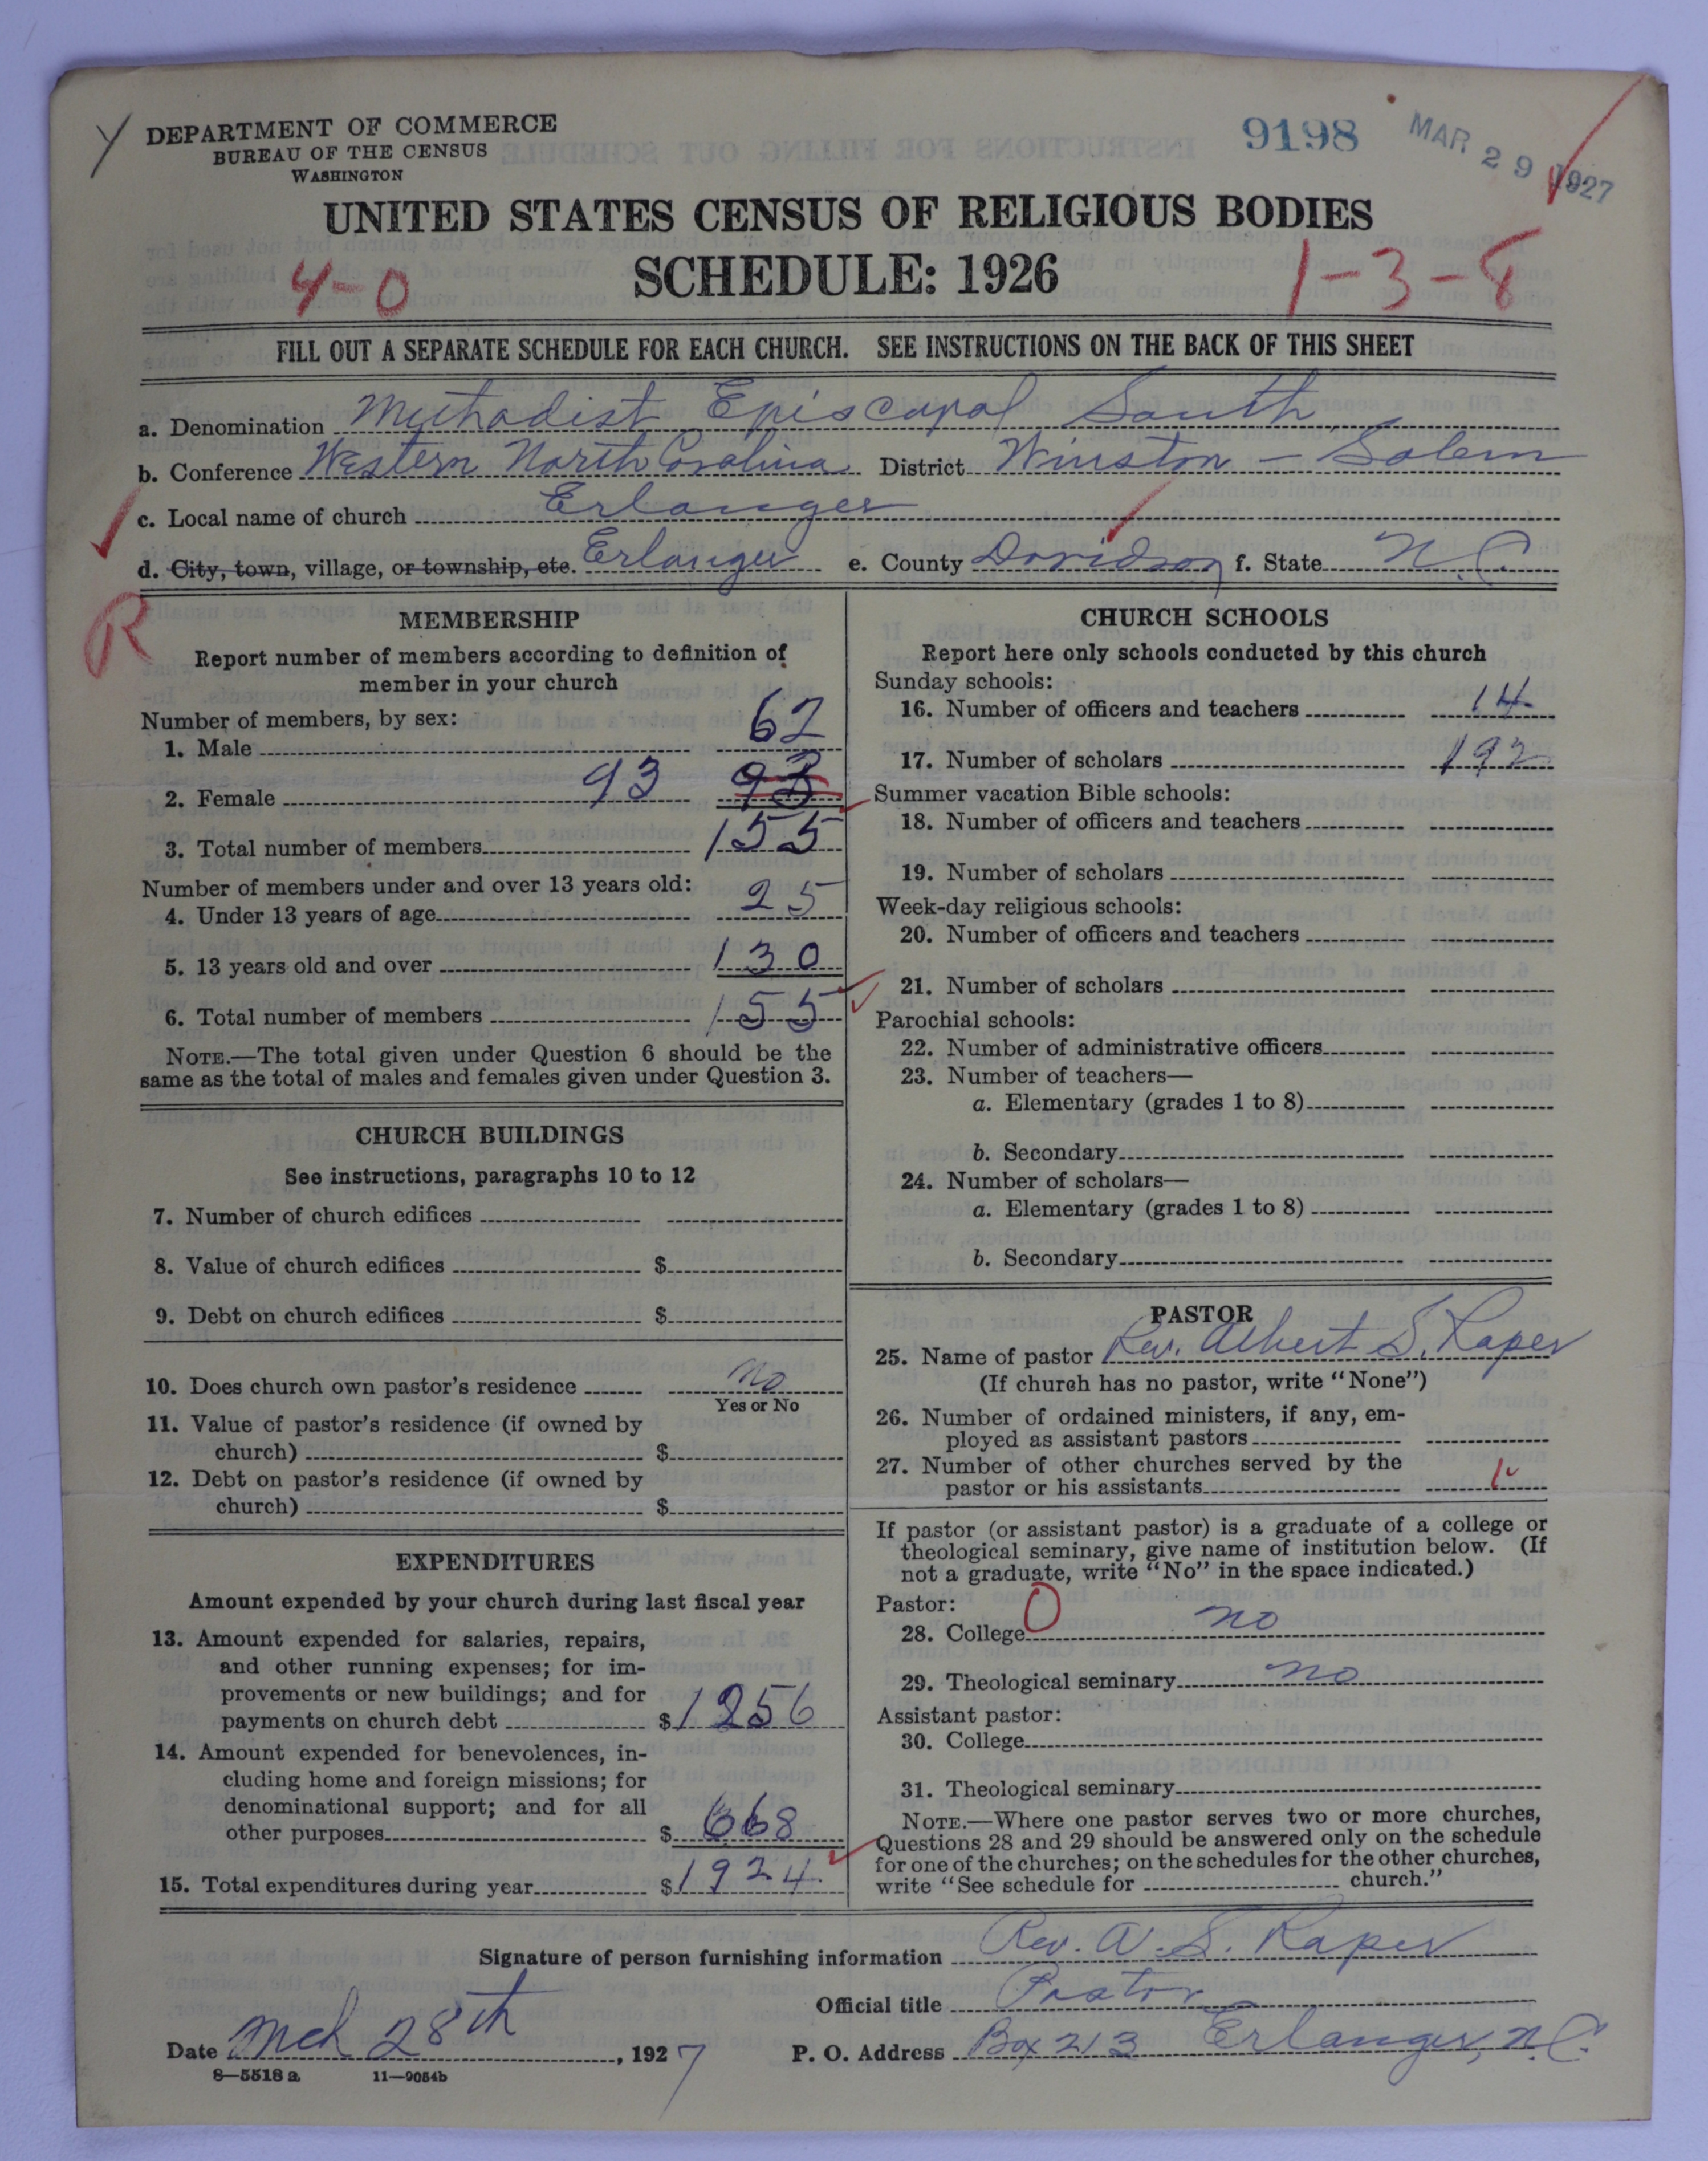 Y
DEPARTMENT OF COMMERCE
BUREAU OF THE CENSUS
WASHINGTON
9198
MAR 29 1927
UNITED STATES CENSUS OF RELIGIOUS BODIES
4-0
SCHEDULE: 1926
1-3-8
FILL OUT A SEPARATE SCHEDULE FOR EACH CHURCH. SEE INSTRUCTIONS ON THE BACK OF THIS SHEET
a. Denomination Methodist Episcopal South
b. Conference Western North Carolina District Winston-Salem
c. Local name of church Erlanger
d. City, town, village, or township, etc. Erlanger e. County Davidson f. State N.C.
R
MEMBERSHIP
Report number of members according to definition of
member in your church
Number of members, by sex:
1. Male 62
2. Female 93 93
3. Total number of members 155
Number of members under and over 13 years old:
4. Under 13 years of age 25
5. 13 years old and over 130
6. Total number of members 155
NOTE.—The total given under Question 6 should be the
same as the total of males and females given under Question 3.
CHURCH BUILDINGS
See instructions, paragraphs 10 to 12
7. Number of church edifices
8. Value of church edifices $
9. Debt on church edifices $
10. Does church own pastor's residence no
Yes or No
11. Value of pastor's residence (if owned by
church) $
12. Debt on pastor's residence (if owned by
church) $
EXPENDITURES
Amount expended by your church during last fiscal year
13. Amount expended for salaries, repairs,
and other running expenses; for im-
provements or new buildings; and for
payments on church debt $1256
14. Amount expended for benevolences, in-
cluding home and foreign missions; for
denominational support; and for all
other purposes $ 668
15. Total expenditures during year $1924
CHURCH SCHOOLS
Report here only schools conducted by this church
Sunday schools:
16. Number of officers and teachers 14
17. Number of scholars 192
Summer vacation Bible schools:
18. Number of officers and teachers
19. Number of scholars
Week-day religious schools:
20. Number of officers and teachers
21. Number of scholars
Parochial schools:
22. Number of administrative officers
23. Number of teachers—
a. Elementary (grades 1 to 8)
b. Secondary
24. Number of scholars—
a. Elementary (grades 1 to 8)
b. Secondary
PASTOR
25. Name of pastor Rev. Albert S. Raper
(If church has no pastor, write "None")
26. Number of ordained ministers, if any, em-
ployed as assistant pastors
27. Number of other churches served by the
pastor or his assistants
If pastor (or assistant pastor) is a graduate of a college or
theological seminary, give name of institution below. (If
not a graduate, write "No" in the space indicated.)
Pastor: 0
28. College no
29. Theological seminary no
Assistant pastor:
30. College
31. Theological seminary
NOTE.—Where one pastor serves two or more churches,
Questions 28 and 29 should be answered only on the schedule
for one of the churches; on the schedules for the other churches,
write "See schedule for church."
Signature of person furnishing information Rev. A. S. Raper
Official title Pastor
Date Mch 28th, 1927
P. O. Address Box 213 Erlanger, N.C.
8—5518 a 11—9054b